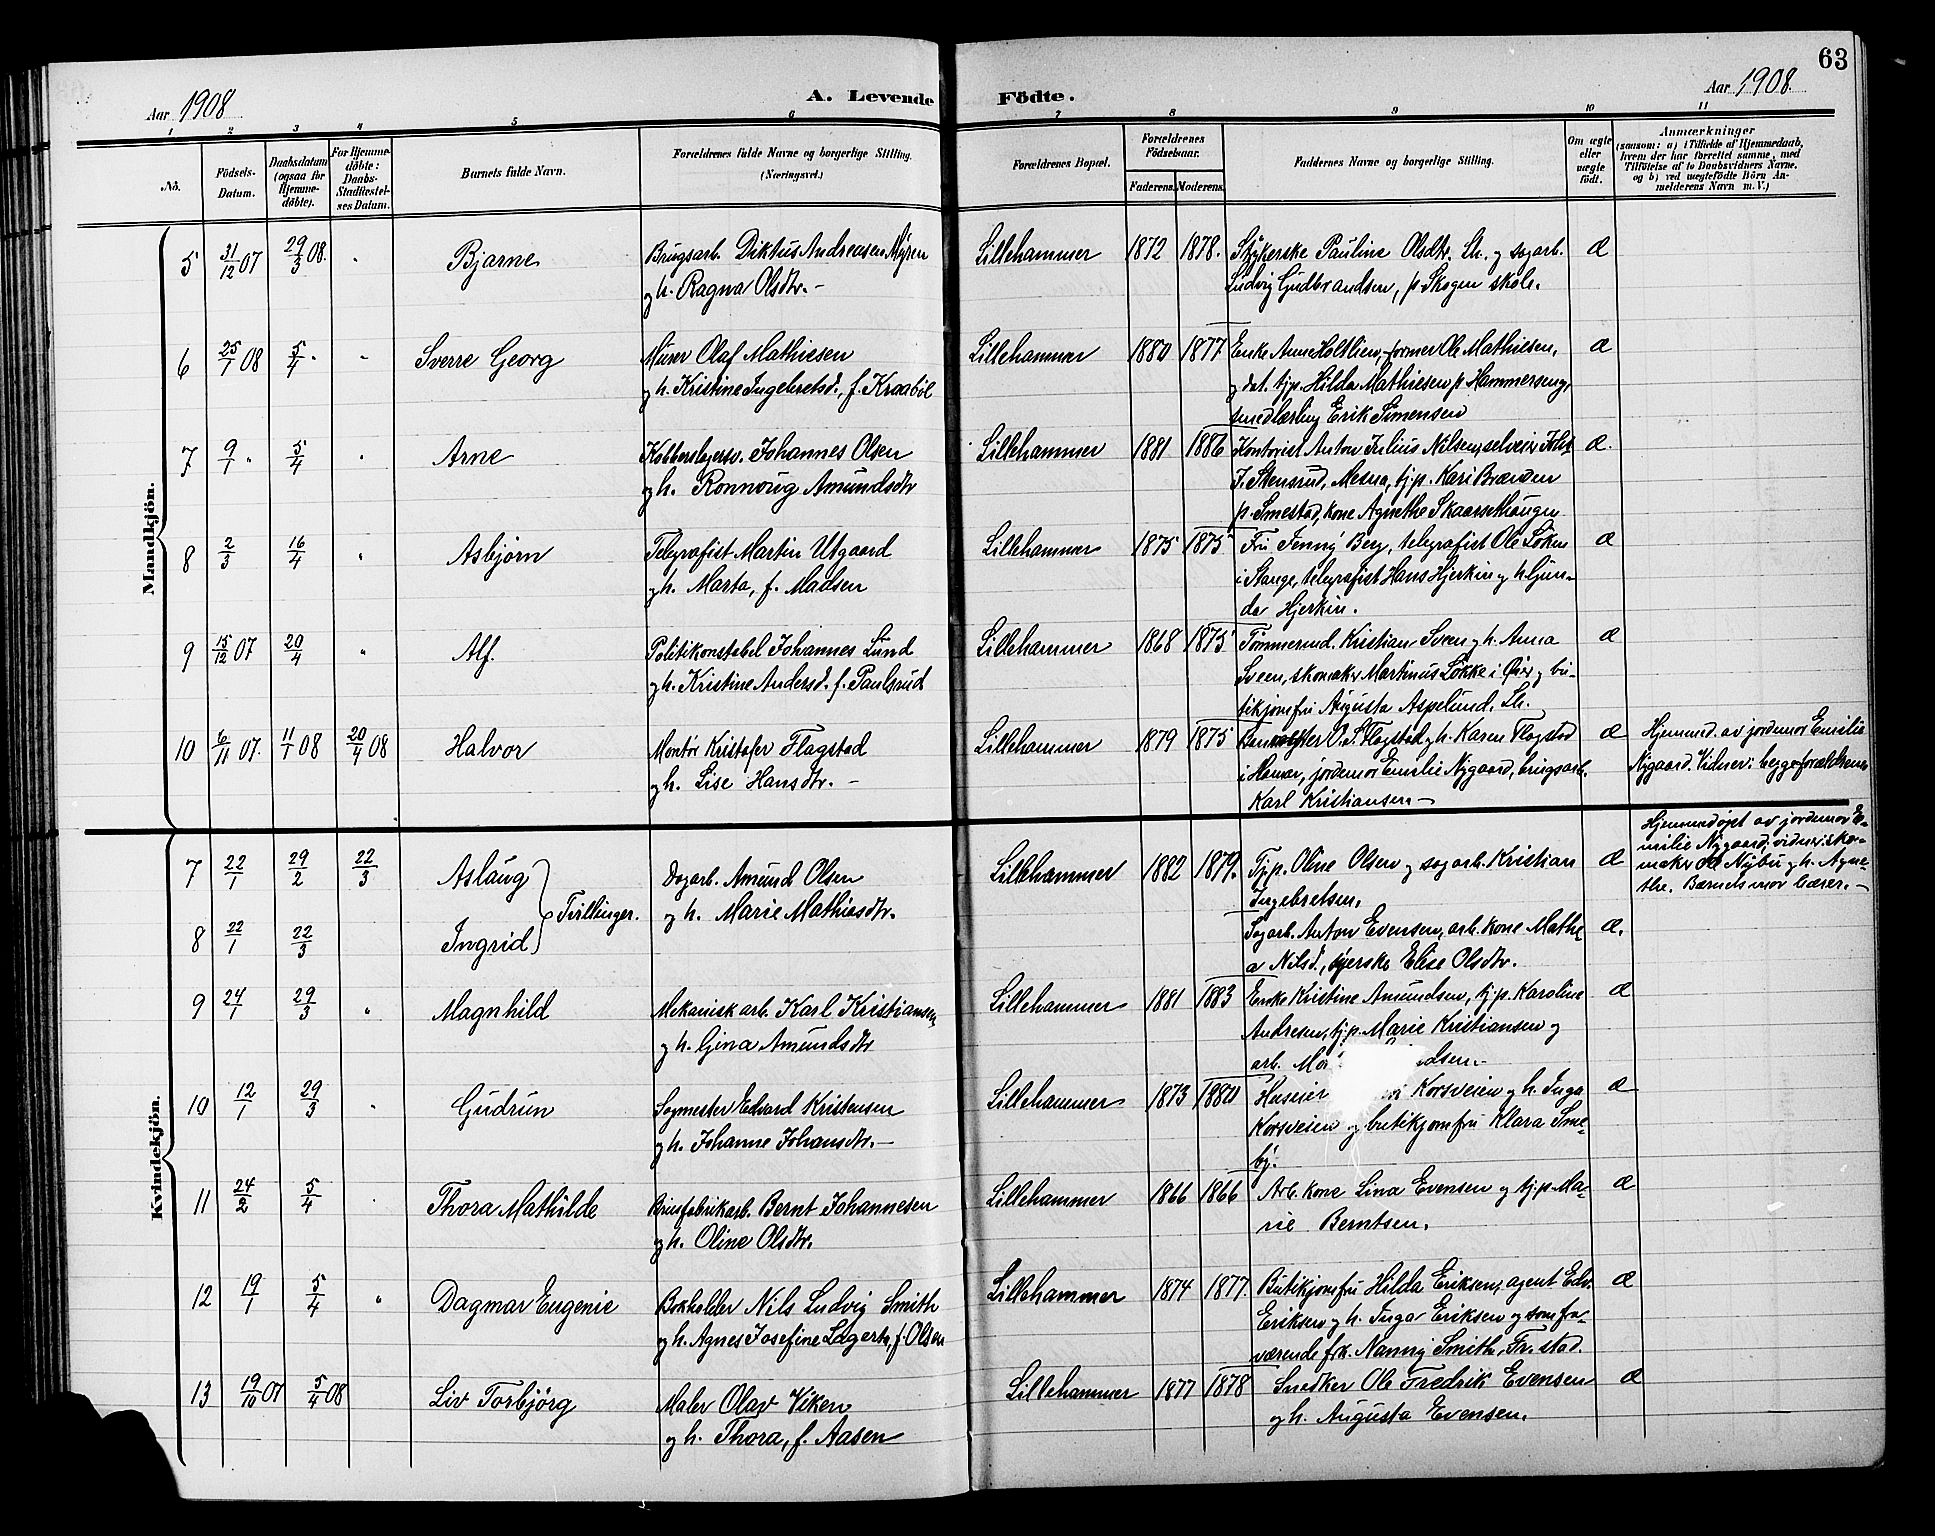 63
Aar 1908 A. Levende Födte. Aar 1908.
1 2 3 4 5 6 7 8 9 10 11
No.
Födsels-
Datum.
Daabsdatum
(ogsaa for
Hjemme-
döbte).
For Hjemme-
döbte:
Daabs-
Stadfæstel-
ses Datum.
Barnets fulde Navn.
Forældrenes fulde Navne og borgerlige Stilling.
(Næringsvei.)
Forældrenes Bopæl.
Forældrenes
Födselsaar.
Faderens. Moderens.
Faddernes Navne og borgerlige Stilling.
Om ægte
eller
uægte
født.
Anmærkninger
(saasom: a) i Tilfælde af Hjemmedaab,
hvem der har forrettet samme, med
Tilföielse af to Daabsvidners Navne,
og b) ved uægtefödte Börn An-
melderens Navn m. V.)
Mandkjön.
5 31/12 07 29/3 08. " Bjarne
Brugsarb. Diktus Andreasen Myren
og h. Ragna Olsdtr. -
Lillehammer 1872 1878.
Strykerske Pauline Olsdtr. Lh. og sagarb.
Ludvig Gudbrandsen, p. Skogen skole.
æ
6 25/1 08 5/4 " " Sverre Georg
Murer Olaf Mathiesen
og h. Kristine Ingebretsd., f. Kraabøl
Lillehammer 1880 1877
Enke Anne Holtlien, former Ole Mathiesen,
og dat. tjp. Hilda Mathiesen p. Hammerseng,
smedlærling Erik Simensen
æ
7 9/1 " 5/4 " Arne
Kobberslagersv. Johannes Olsen
og h. Rønnoug Amundsdtr
Lillehammer 1881 1886
Kontorist Anton Julius Nilsen, selveier
J. Stensrud, Mesna, tj.p. Kari Brænden
p. Smestad, kone Agnethe Skaarsethaugen
æ.
8 2/3 16/4 " Asbjørn
Telegrafist Martin Utgaard
og h. Marta, f. Madsen
Lillehammer 1875 1875
Fru Jenny Berg, telegrafist Ole Løken
i Stange, telegrafist Hans Hjerkin og h. Gun-
da Hjerkin.
æ
9 15/12 07 20/4 " Alf.
Politikonstabel Johannes Lund
og h. Kristine Andersd. f. Paulsrud
Lillehammer 1868 1875
Tømmermd. Kristian Sveen og h. Anna
Sveen, skomaker Martinus Løkke i Øier og bu-
tikjomfru Augusta Aspelund. Lh.
æ
10 6/11 07. 11/1 08 20/4 08 Halvor
Montør Kristofer Flagstad
og h. Lise Hansdtr. -
Lillehammer 1879 1875
O. S. Flagstad og h. Karen Flagstad
i Hamar, jordemor Emilie Nygaard, brugsarb.
Karl Kristiansen -
æ
Hjemmed. av jordemor Emilie
Nygaard. Vidner: begge forældrene
Kvindekjön.
7 22/1 29/2 22/3 Aslaug
Tvillinger.
Dagarb. Amund Olsen
og h. Marie Mathiasdtr.
Lillehammer 1882 1879.
Tj.p. Oline Olsen og sagarb. Kristian
Ingebretsen.
æ
Hjemmedøpt av jordemor E-
milie Nygaard, vidner: sko-
maker Ole Nybu og h. Agne-
the. Barnets mor bærer. -
8 22/1 22/3 Ingrid
Sagarb. Anton Evensen, arb. kone Mathe
a Nilsd., syerske Elise Olsdtr.
æ.
9 24/1 29/3 " Magnhild
Mekanisk arb. Karl Kristiansen
og h. Gina Amundsdtr
Lillehammer 1881 1883
Enke Kristine Amundsen, tj.p. Karoline
Andresen, tj.p. Marie Kristiansen og
arb. dsen. -
æ
10 12/1 29/3 " Gudrun
Sagmester Edvard Kristensen
og h. Johanne Johansdtr. -
Lillehammer 1873 1880
Huseier Korsveien og h. Inga
Korsveien og butikjomfru Klara Sme-
by.
æ
11 24/2 5/4 " Thora Mathilde
Brusfabrikarb. Bernt Johannesen
og h. Oline Olsdtr.
Lillehammer 1866 1866
Arb. kone Lina Evensen og tj.p. Ma-
rie Berntsen.
æ
12 19/1 5/4 " Dagmar Eugenie
Bokholder Nils Ludvig Smith
og h. Agnes Josefine Lagerta, f. Olsen
Lillehammer 1874 1877.
Butikjomfru Hilda Eriksen, agent Edv.
Eriksen og h. Inga Eriksen og som fra-
værende frk. Nanny Smith, Fr.stad.
æ
13 19/10 07 5/4 08 Liv Torbjörg
Maler Olav Viken
og h. Thora, f. Aasen
Lillehammer 1877 1878
Snedker Ole Fredrik Evensen
og h. Augusta Evensen.
æ